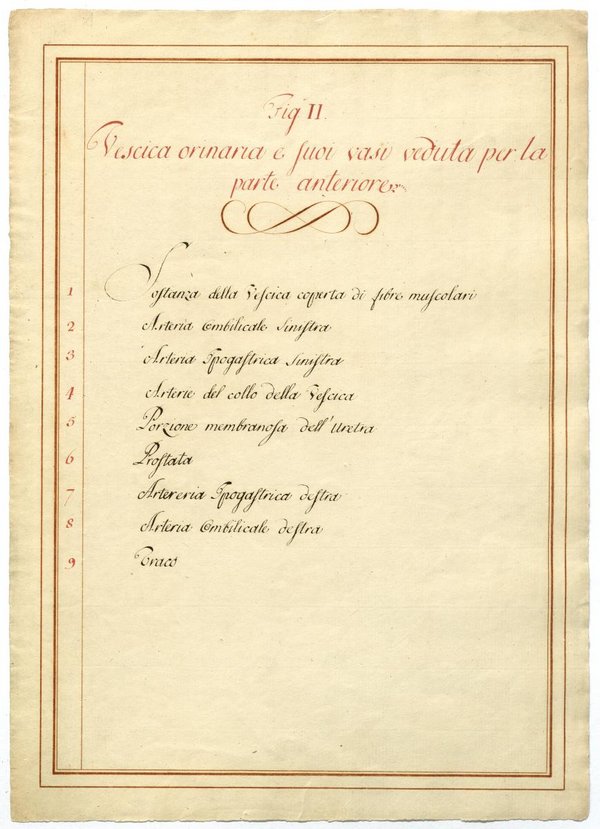 Fig II.
Vescica orinaria e suoi vasi veduta per la
parte anteriore
1 Sostanza della Vescica coperta di fibre muscolari
2 Arteria Ombilicale sinistra
3 Arteria Ipogastrica sinistra
4 Arterie del collo della Vescica
5 Porzione membranosa dell'Uretra
6 Prostata
7 Artereria Ipogastrica destra
8 Arteria Ombilicale destra
9 Oraco